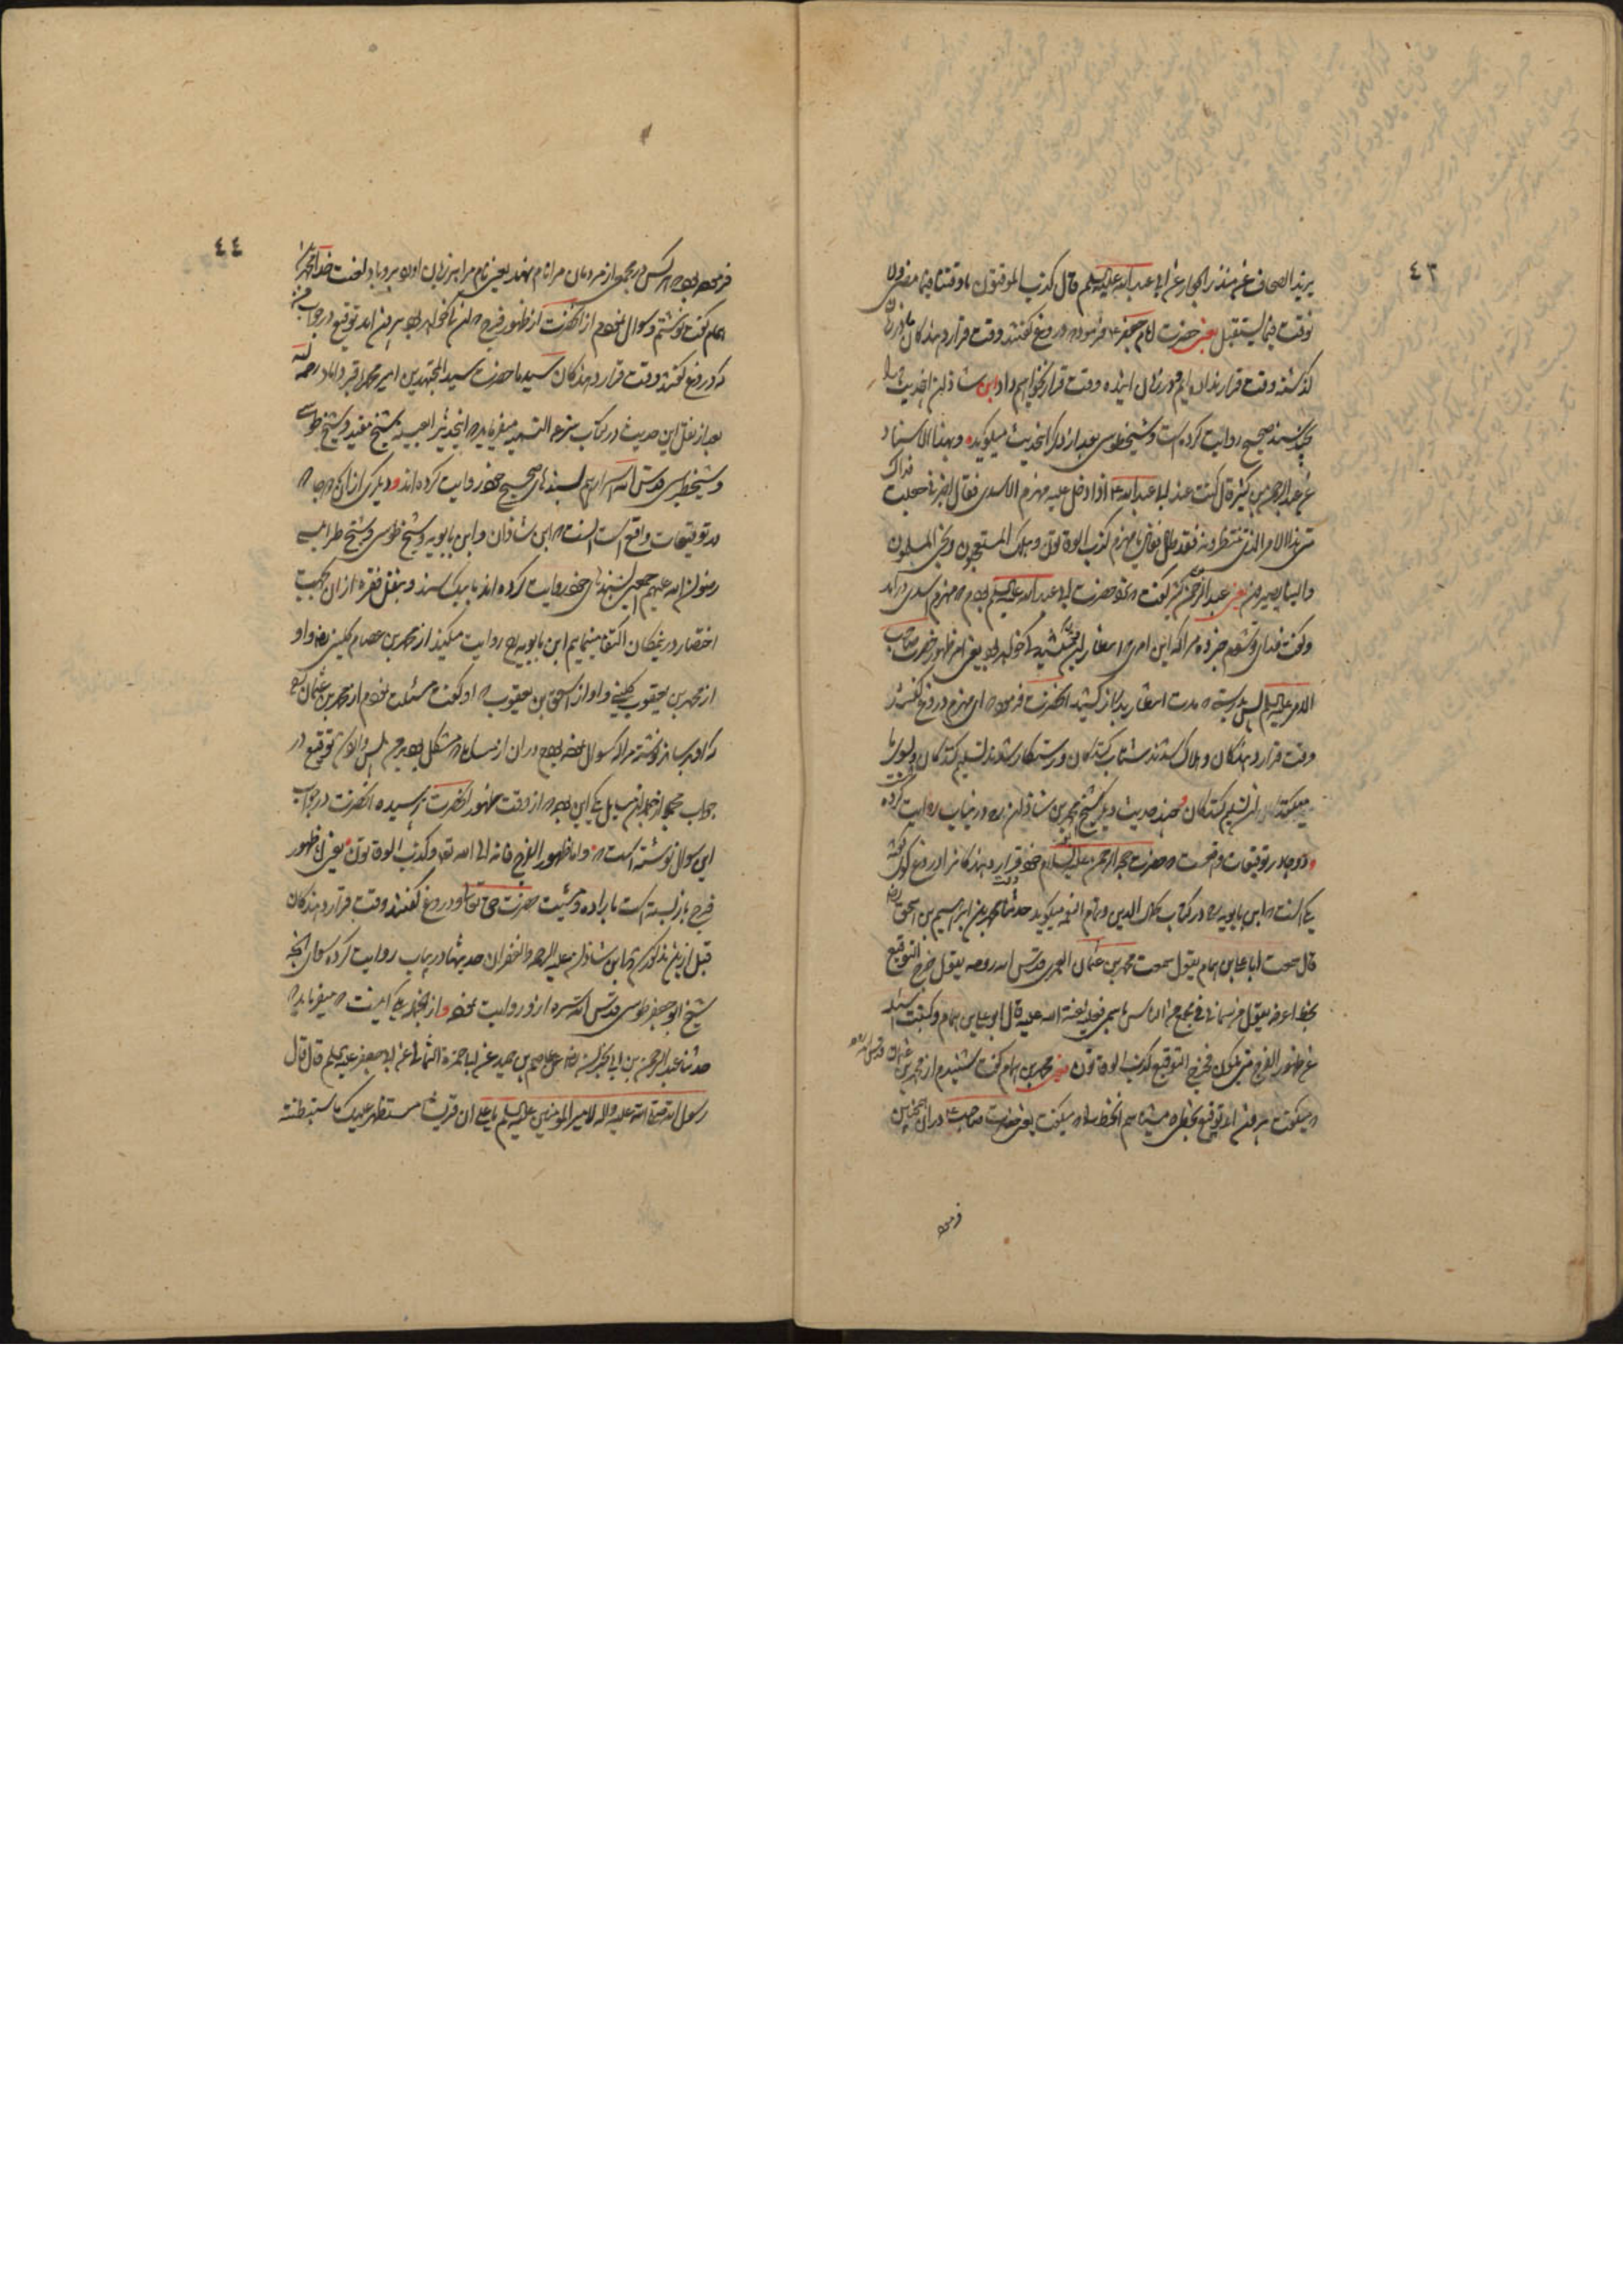 ٤٣
یزید الصحاف عن منذر الجواز عن ابی عبد الله علیه السلم قال کذب الموقتون ما وقتنا فیما مضی ولا
نوقت فیما یستقبل یعنی حضرت امام جعفر ع فرموده که دروغ گفتند وقت قرار دهندکان ما در زمان
گذشته وقت قرار نداده ایم و در زمان آینده وقت قرار نخواهیم داد و ابن شاذان این حدیث را
بسند صحیح روایت کرده است و شیخ طوسی بعد از ذکر این حدیث میگوید که و بهذا الاسناد
عن عبد الرحمن بن کثیر قال کنت عند ابی عبد الله ع اذ دخل علیه مهزم الاسدی فقال اخبرنی جعلت فداک
متی هذا الامر الذی تنتظرونه فقد طال فقال یا مهزم کذب الوقاتون و هلک المستعجلون و نجی المسلمون
و الینا یصیرون یعنی عبد الرحمن بن کثیر گفت که نزد حضرت ابی عبد الله علیه السلم بودم که مهزم اسدی در آمد
و گفت فدای تو شوم خبر ده مرا که این امری که انتظار آن میکشید کی خواهد بود یعنی امر ظهور حضرت صاحب
الامر علیه السلم پس بدرستی که مدت انتظار بدراز کشید آنحضرت فرمود که ای مهزم دروغ گفتند
وقت قرار دهندکان و هلاک شدند شتاب کنندکان و رستکار شدند تسلیم کنندکان و بسوی ما
میکشند تسلیم کنندکان و چند حدیث دیگر شیخ محمد بن شاذان ره در نیباب روایت کرده
و دو جا در توقیعات واقعست که حضرت حجة الرحمن علیه السلام وقت قرار دهندکانرا دروغ گوی گفته
یکی آنست که ابن بابویه ره در کتاب کمال الدین و تمام النعمه میگوید حدثنا محمد بن ابراهیم بن اسحق رض
قال سمعت ابا علی بن همام یقول سمعت محمد بن عثمان العمری قدس الله روحه یقول خرج التوقیع
بخط اعرفه یقول من سمانی فی مجمع من الناس باسمی فعلیه لعنة الله قال ابو علی بن همام و کتبت اسئله
عن ظهور الفرج متی یکون فخرج التوقیع کذب الوقاتون یعنی محمد بن همام گفت شنیدم از محمد بن عثمان قدس الله روحه
که میگفت بیرون آمد توقیع بخطی که میشناسم آنخط را که میگفت یعنی حضرت صاحب ع در آن همچنین
فرموده
٤٤
فرموده بود که هر کس در مجمعی از مردمان مرا نام نهد یعنی نام مرا بر زبان آورد بر او باد لعنت خدا محمد بن
همام گفت نوشتم و سوال نمودم از آنحضرت از ظهور فرج که آن کی خواهد بود بیرون آمد توقیع در جواب من
که دروغ گفتند وقت قرار دهندکان سید ما حضرت سید المجتهدین امیر محمد باقر داماد رحمه الله
بعد از نقل این حدیث در کتاب شرعة التسمیه میفرماید که این حدیث را بعینه شیخ مفید و شیخ طوسی
و شیخ طبرسی قدس الله اسرارهم بسندهای صحیح خود روایت کرده اند و دیگری از آن دو جا که
در توقیعات واقع است آنست که ابن شاذان و ابن بابویه و شیخ طوسی و شیخ طبرسی
رضوان الله علیهم اجمعین بسندهای خود روایت کرده اند ما بیک سند و بنقل فقره از آن بجهت
اختصار در ینمکان اکتفا مینماییم ابن بابویه ره روایت میکند از محمد بن عصام کلینی رض و او
از محمد بن یعقوب کلینی و او از اسحق بن یعقوب که او گفت مسئلت نمودم از محمد بن عثمان عمری
که او برساند نوشته مرا که سوال نموده بودم در آن از مسایلی که مشکل بود بر من پس وارد شد توقیع در
جواب من از جمله آن مسایل یکی این بود که از وقت ظهور آنحضرت پرسیده آنحضرت در جواب
این سوال نوشته است که و اما ظهور الفرج فانه الی الله تعالی و کذب الوقاتون یعنی ظهور
فرج باز بسته است باراده و مشیت حضرت حق تعالی و دروغ گفتند وقت قرار دهندکان
قبل ازین مذکور شد که ابن شاذان علیه الرحمة و الغفران حدیثها در ینباب روایت کرده سوای آنچه
شیخ ابو جعفر طوسی قدس الله سره از او روایت نموده و از آنجمله یکی اینست که میفرماید که
حدثنا عبد الرحمن بن ابی نجران رض عن عاصم بن حمید عن ابی حمزة الثمالی عن ابی جعفر علیه السلم قال قال
رسول الله صلی الله علیه و اله لامیر المومنین علیه السلم یا علی ان قریشا ستظهر علیک ما استبطنته